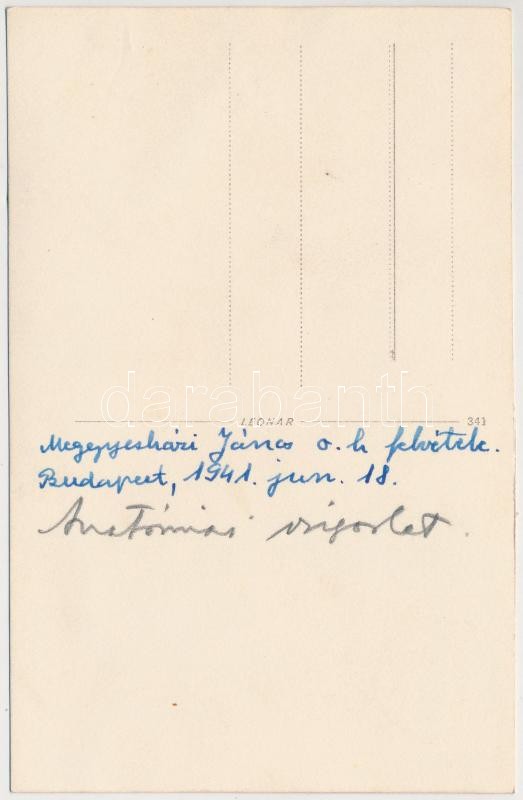 darabanth
LEONAR 341
Megyesházi János o. h. felvétele.
Budapest, 1941. jun. 18.
Anatómiai szigorlat.